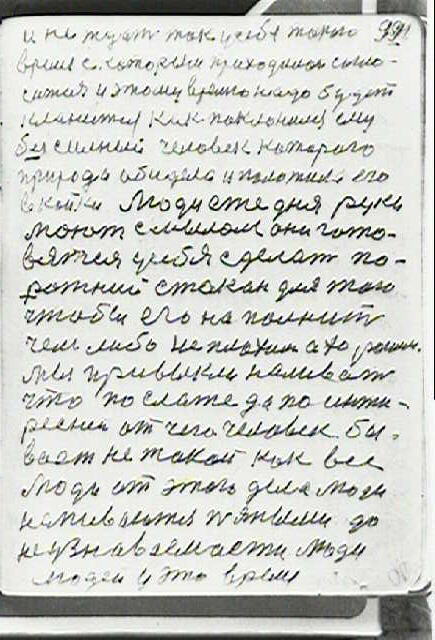 и не ждат так у себя такого 991
время с которым приходилось согло-
сится и этому время надо будет
кланится как поклонился ему
бессильный человек которого
природа обидела и положила его
в койки Люди сегодня руки
моют с мылом они гото-
вятися у себя сделат по-
рожний стакан для того
чтобы его наполнит
чем либо не плохим а хорошим.
мы привыкли наливат
что послаще да по интир-
ресней от чего человек бы-
вает не такой как все
люди от этого дела люди
напиваются пянымы до
неузнаваемасти люди
людей у это время